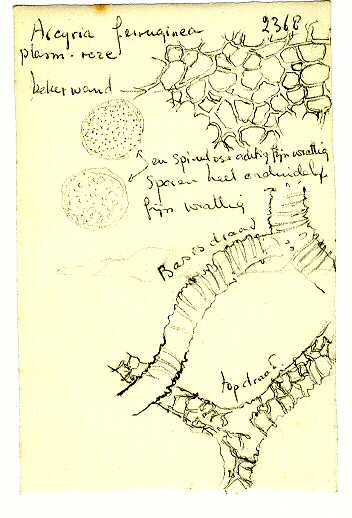 Arcyria ferruginea 2368
plasm. roze
bekerwand
en spinulose achtig fijn wrattig
sporen heel onduidelijk
fijn wrattig
Basisdraad
topdraad